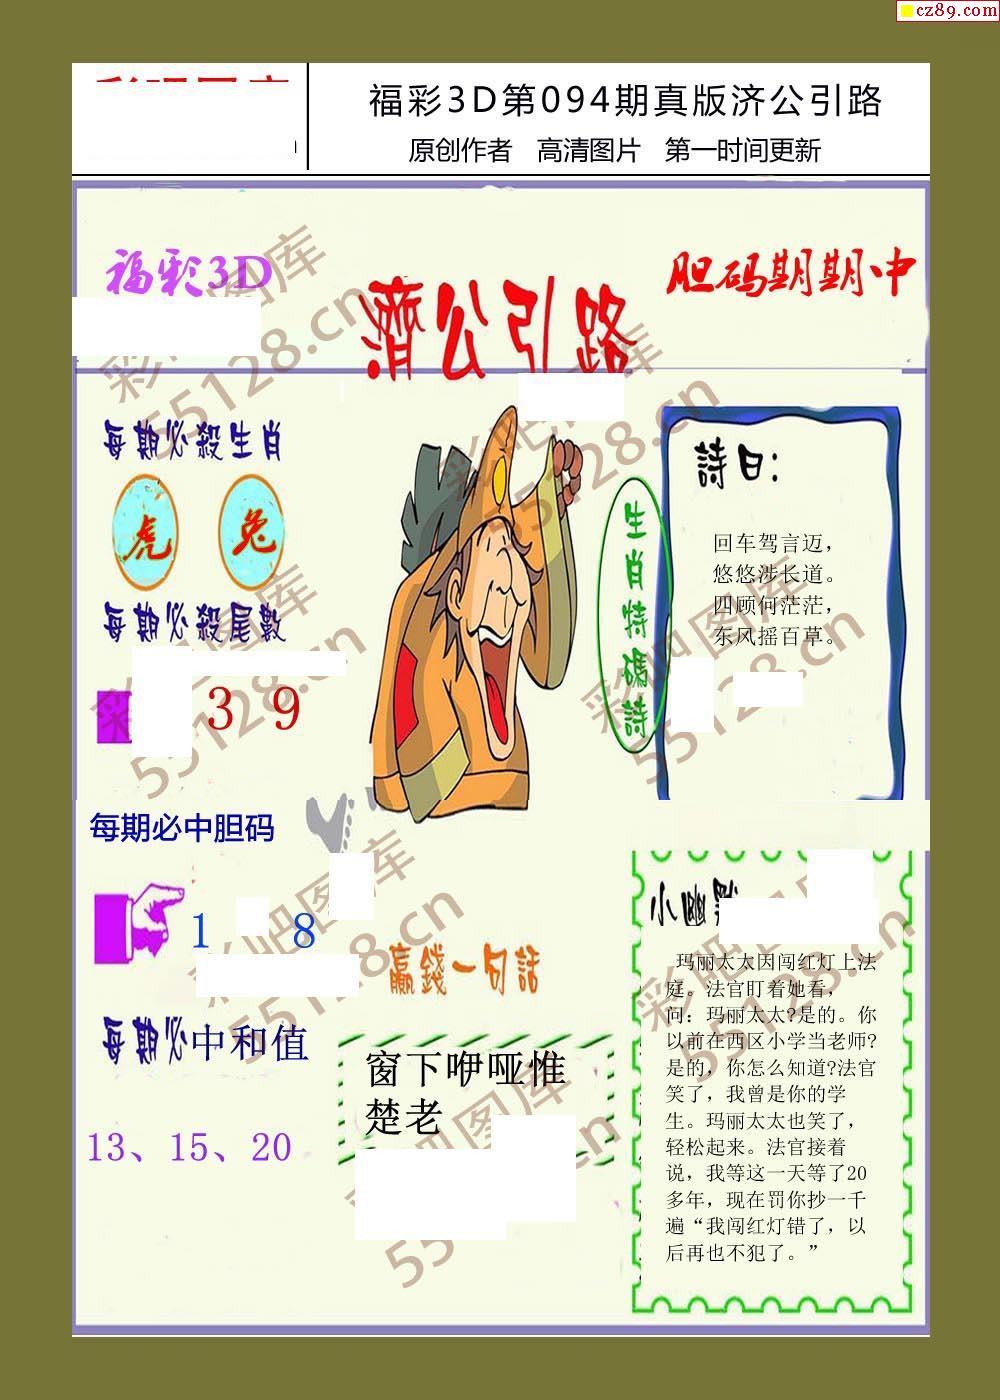 cz89.com
福彩3D第094期真版济公引路
原创作者 高清图片 第一时间更新
福彩3D
濟公引路
胆码期期中
每期必殺生肖
虎 兔
每期必殺尾數
3 9
每期必中胆码
1 8
每期必中和值
13、15、20
赢錢一句話
窗下咿哑惟
楚老
生肖特碼詩
詩曰：
回车驾言迈，
悠悠涉长道。
四顾何茫茫，
东风摇百草。
小幽默
玛丽太太因闯红灯上法
庭。法官盯着她看，
问：玛丽太太?是的。你
以前在西区小学当老师?
是的，你怎么知道?法官
笑了，我曾是你的学
生。玛丽太太也笑了，
轻松起来。法官接着
说，我等这一天等了20
多年，现在罚你抄一千
遍“我闯红灯错了，以
后再也不犯了。”
彩吧图库
55128.cn
彩吧图库
55128.cn
彩吧图库
55128.cn
彩吧图库
55128.cn
彩吧图库
55128.cn
彩吧图库
55128.cn
彩吧图库
55128.cn